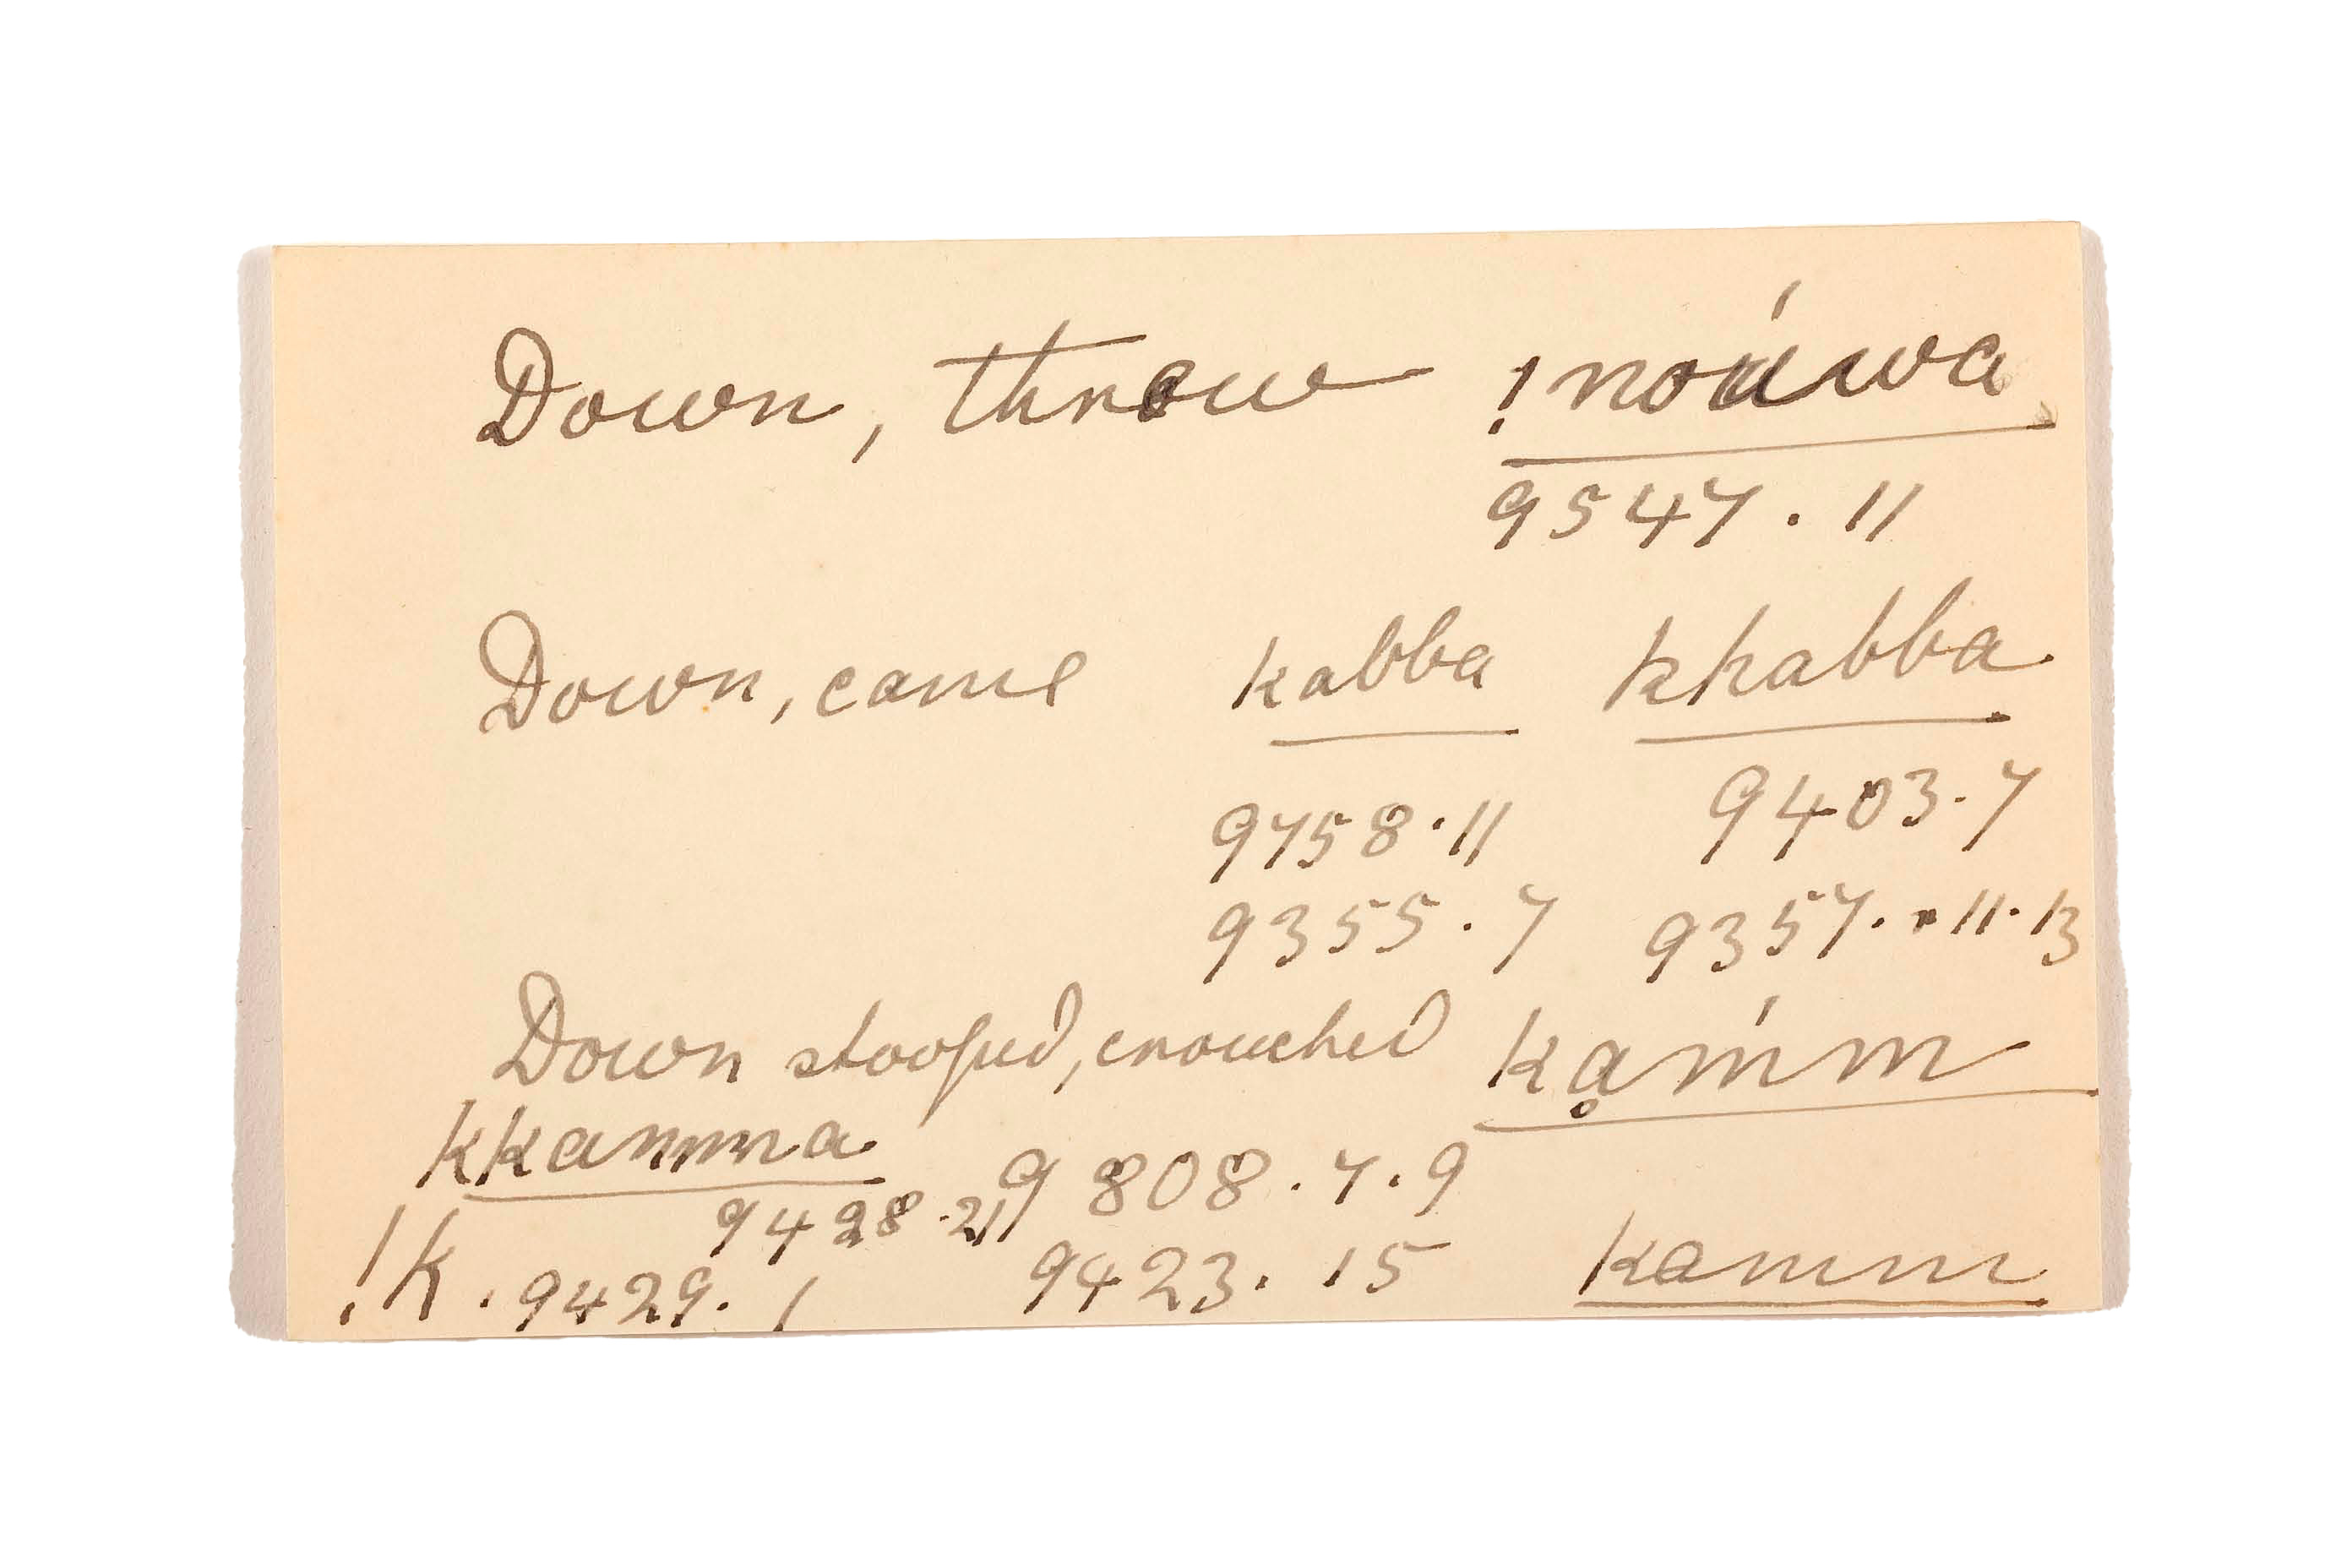 Down, threw !noáwa
9547 . 11
Down, came kabba khabba
9758.11 9403.7
9355.7 9357. 11.13
Down stooped, crouched kạm̍m
kkamma 9808.7.9
9428.21
!k. 9429. 1 9423. 15 kamm